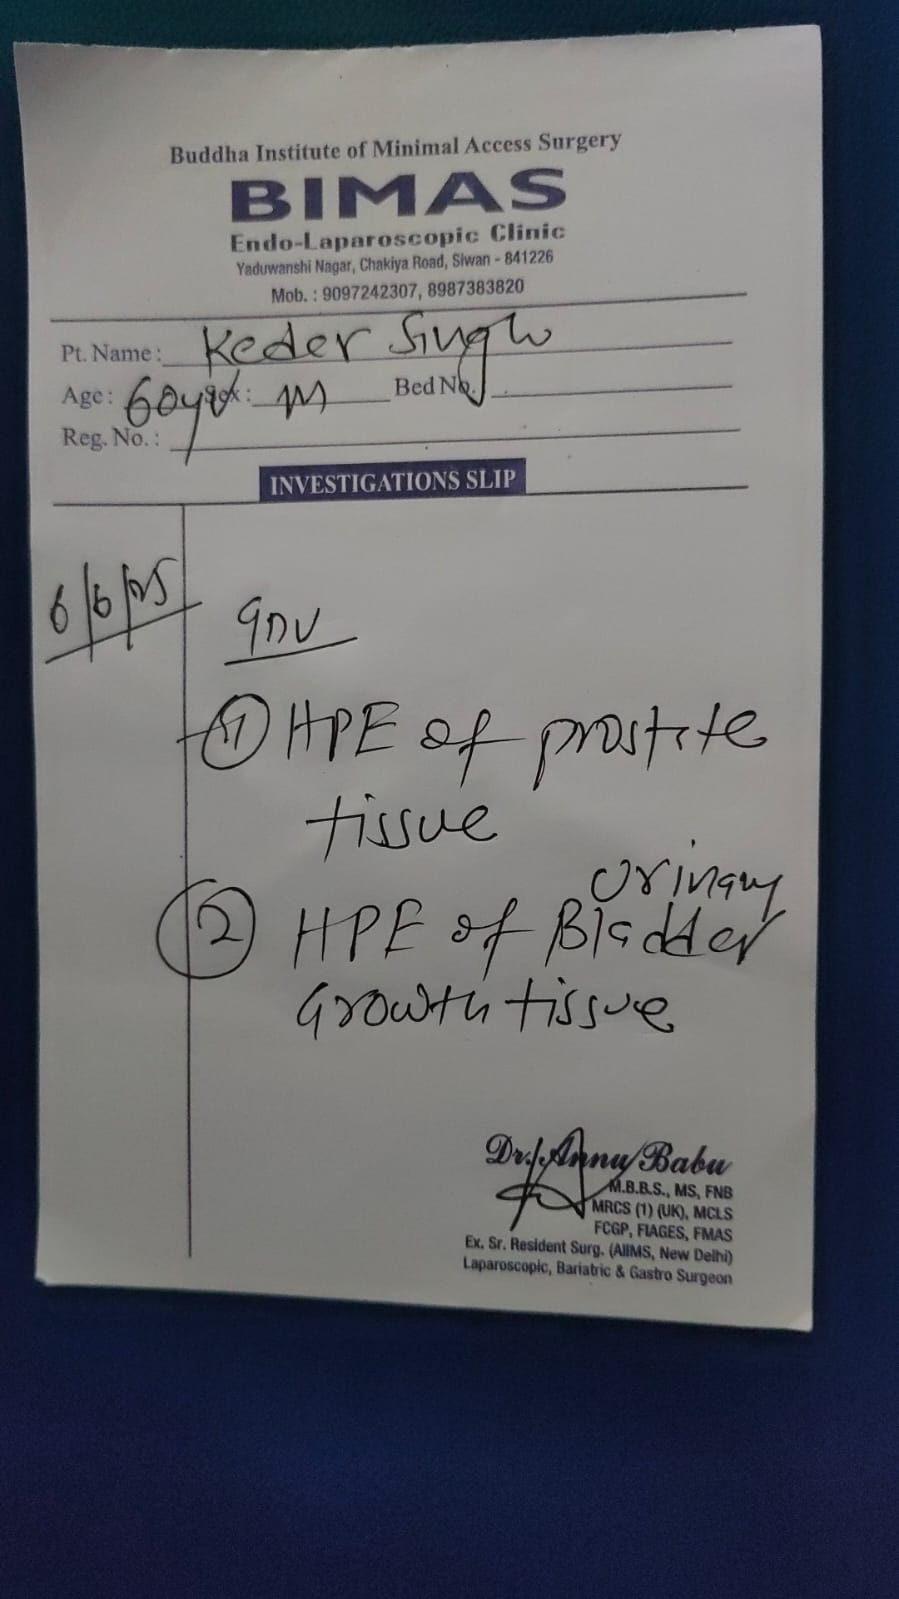 Buddha Institute of Minimal Access Surgery
BIMAS
Endo-Laparoscopic Clinic
Yaduwanshi Nagar, Chakiya Road, Siwan - 841226
Mob. : 9097242307, 8987383820
Pt. Name: Keder Singh
Age: 60yr Sex: M Bed No.
Reg. No.:
INVESTIGATIONS SLIP
6/6/25
Inv
① HPE of prostate
tissue
urinary
② HPE of Bladder
Growth tissue
Dr. Annu Babu
M.B.B.S., MS, FNB
MRCS (1) (UK), MCLS
FCGP, FIAGES, FMAS
Ex. Sr. Resident Surg. (AIIMS, New Delhi)
Laparoscopic, Bariatric & Gastro Surgeon